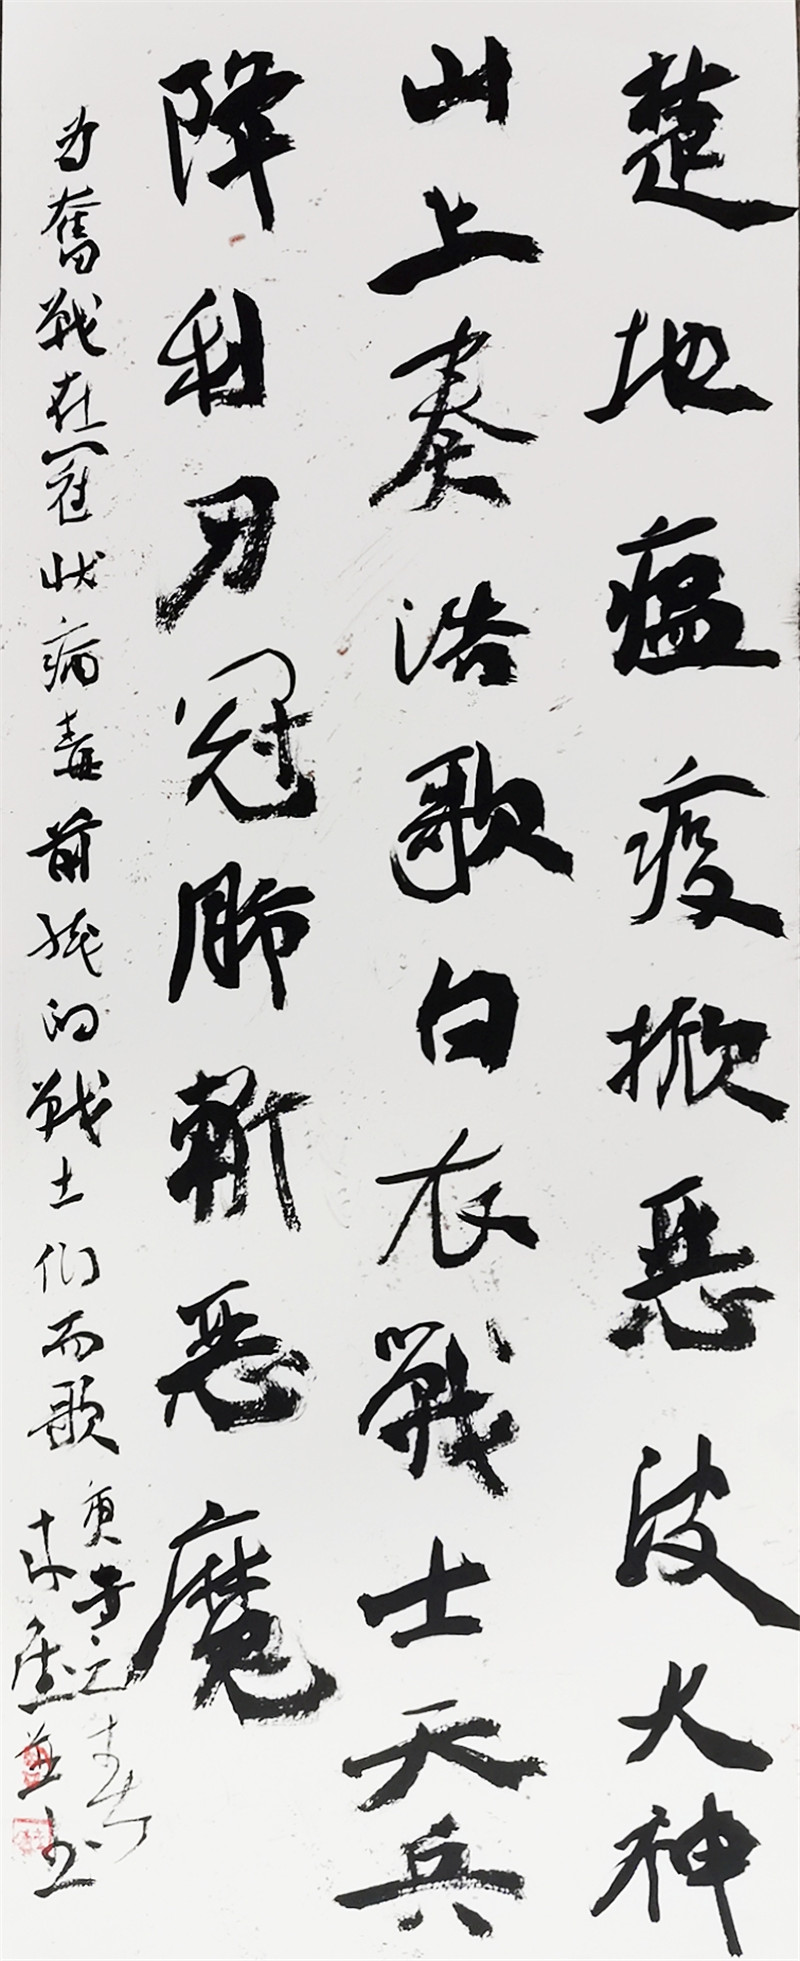 楚地瘟疫掀恶波火神
山上奏浩歌白衣戰士天兵
降利刃冠肺斬惡魔
为奮戰在冠状病毒前线的戰士们而歌
庚子之春
并书